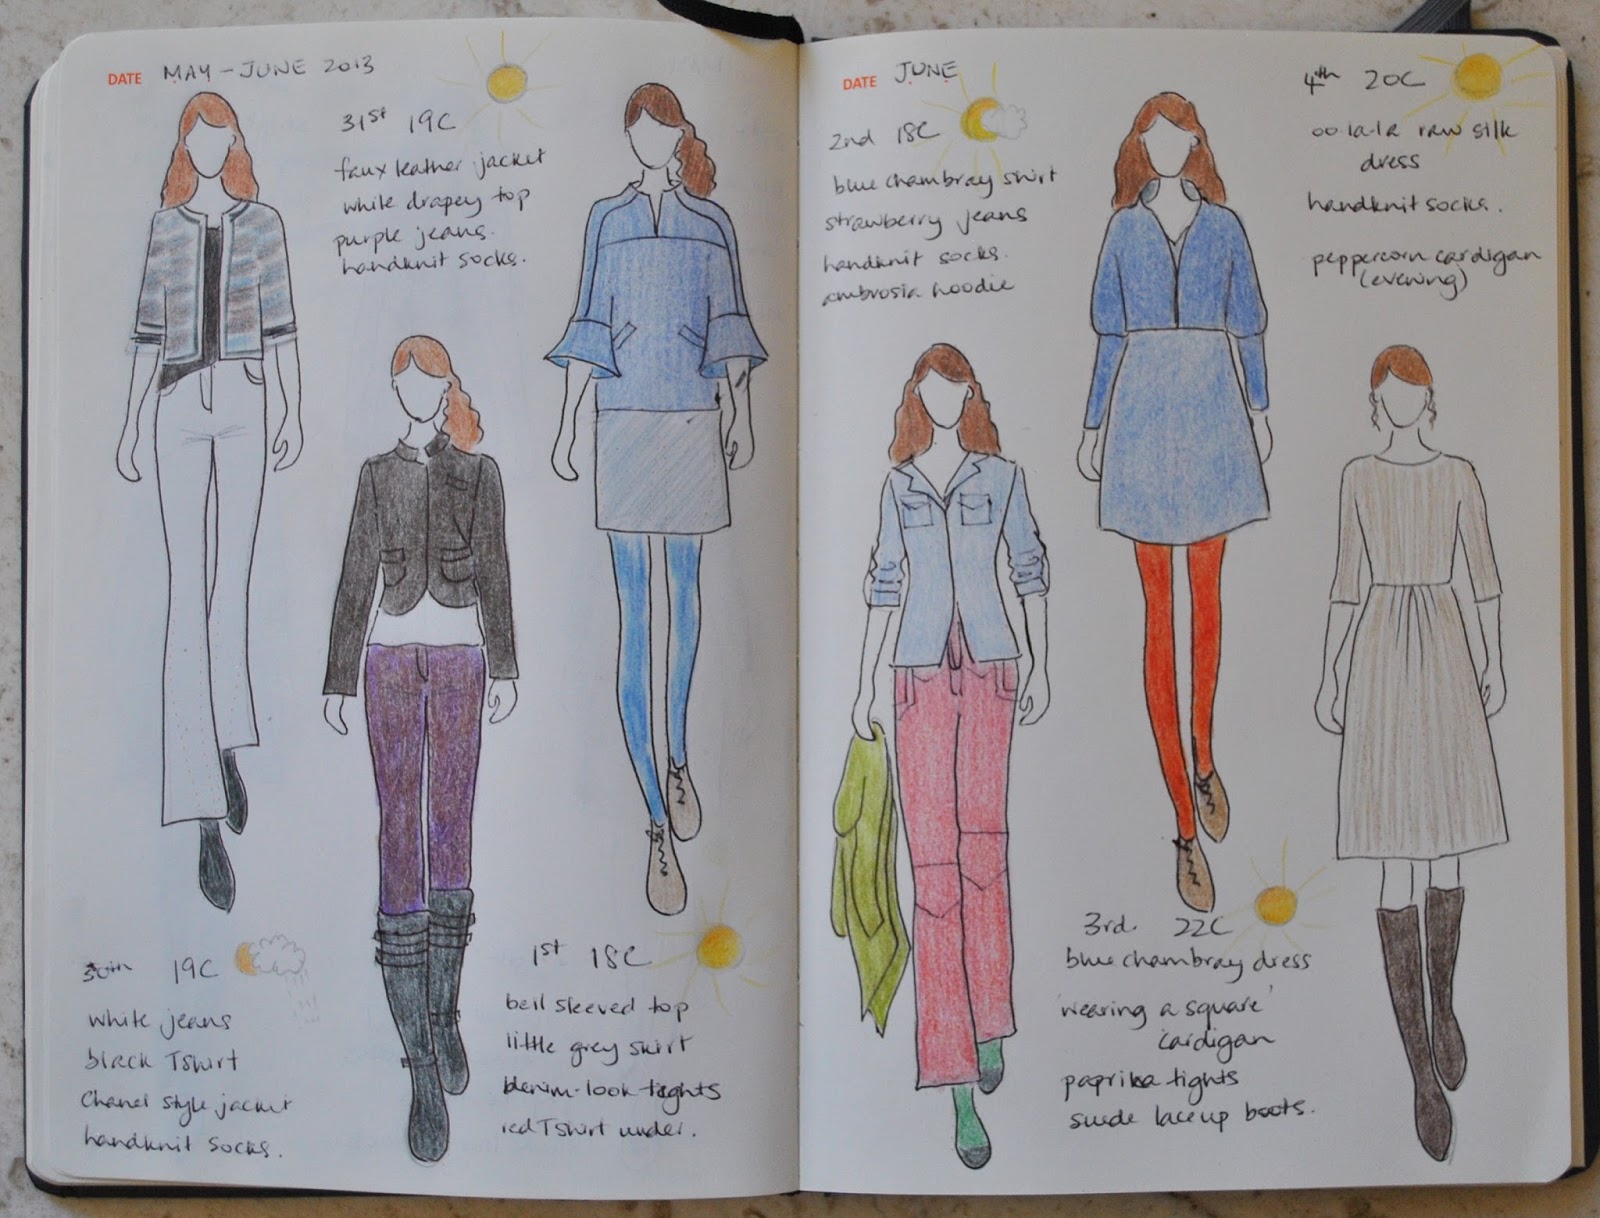 DATE MAY - JUNE 2013
31st 19C
faux leather jacket
white drapey top
purple jeans.
handknit socks.
30th 19C
white jeans
black Tshirt
Chanel style jacket
handknit socks.
1st 18C
bell sleeved top
little grey skirt
denim-look tights
red Tshirt under.
DATE JUNE
2nd 18C
blue chambray shirt
strawberry jeans
handknit socks.
ambrosia hoodie
3rd. 22C
blue chambray dress
'wearing a square'
cardigan
paprika tights
suede lace up boots.
4th 20C
oo-la-la raw silk
dress
handknit socks.
peppercorn cardigan
(evening)